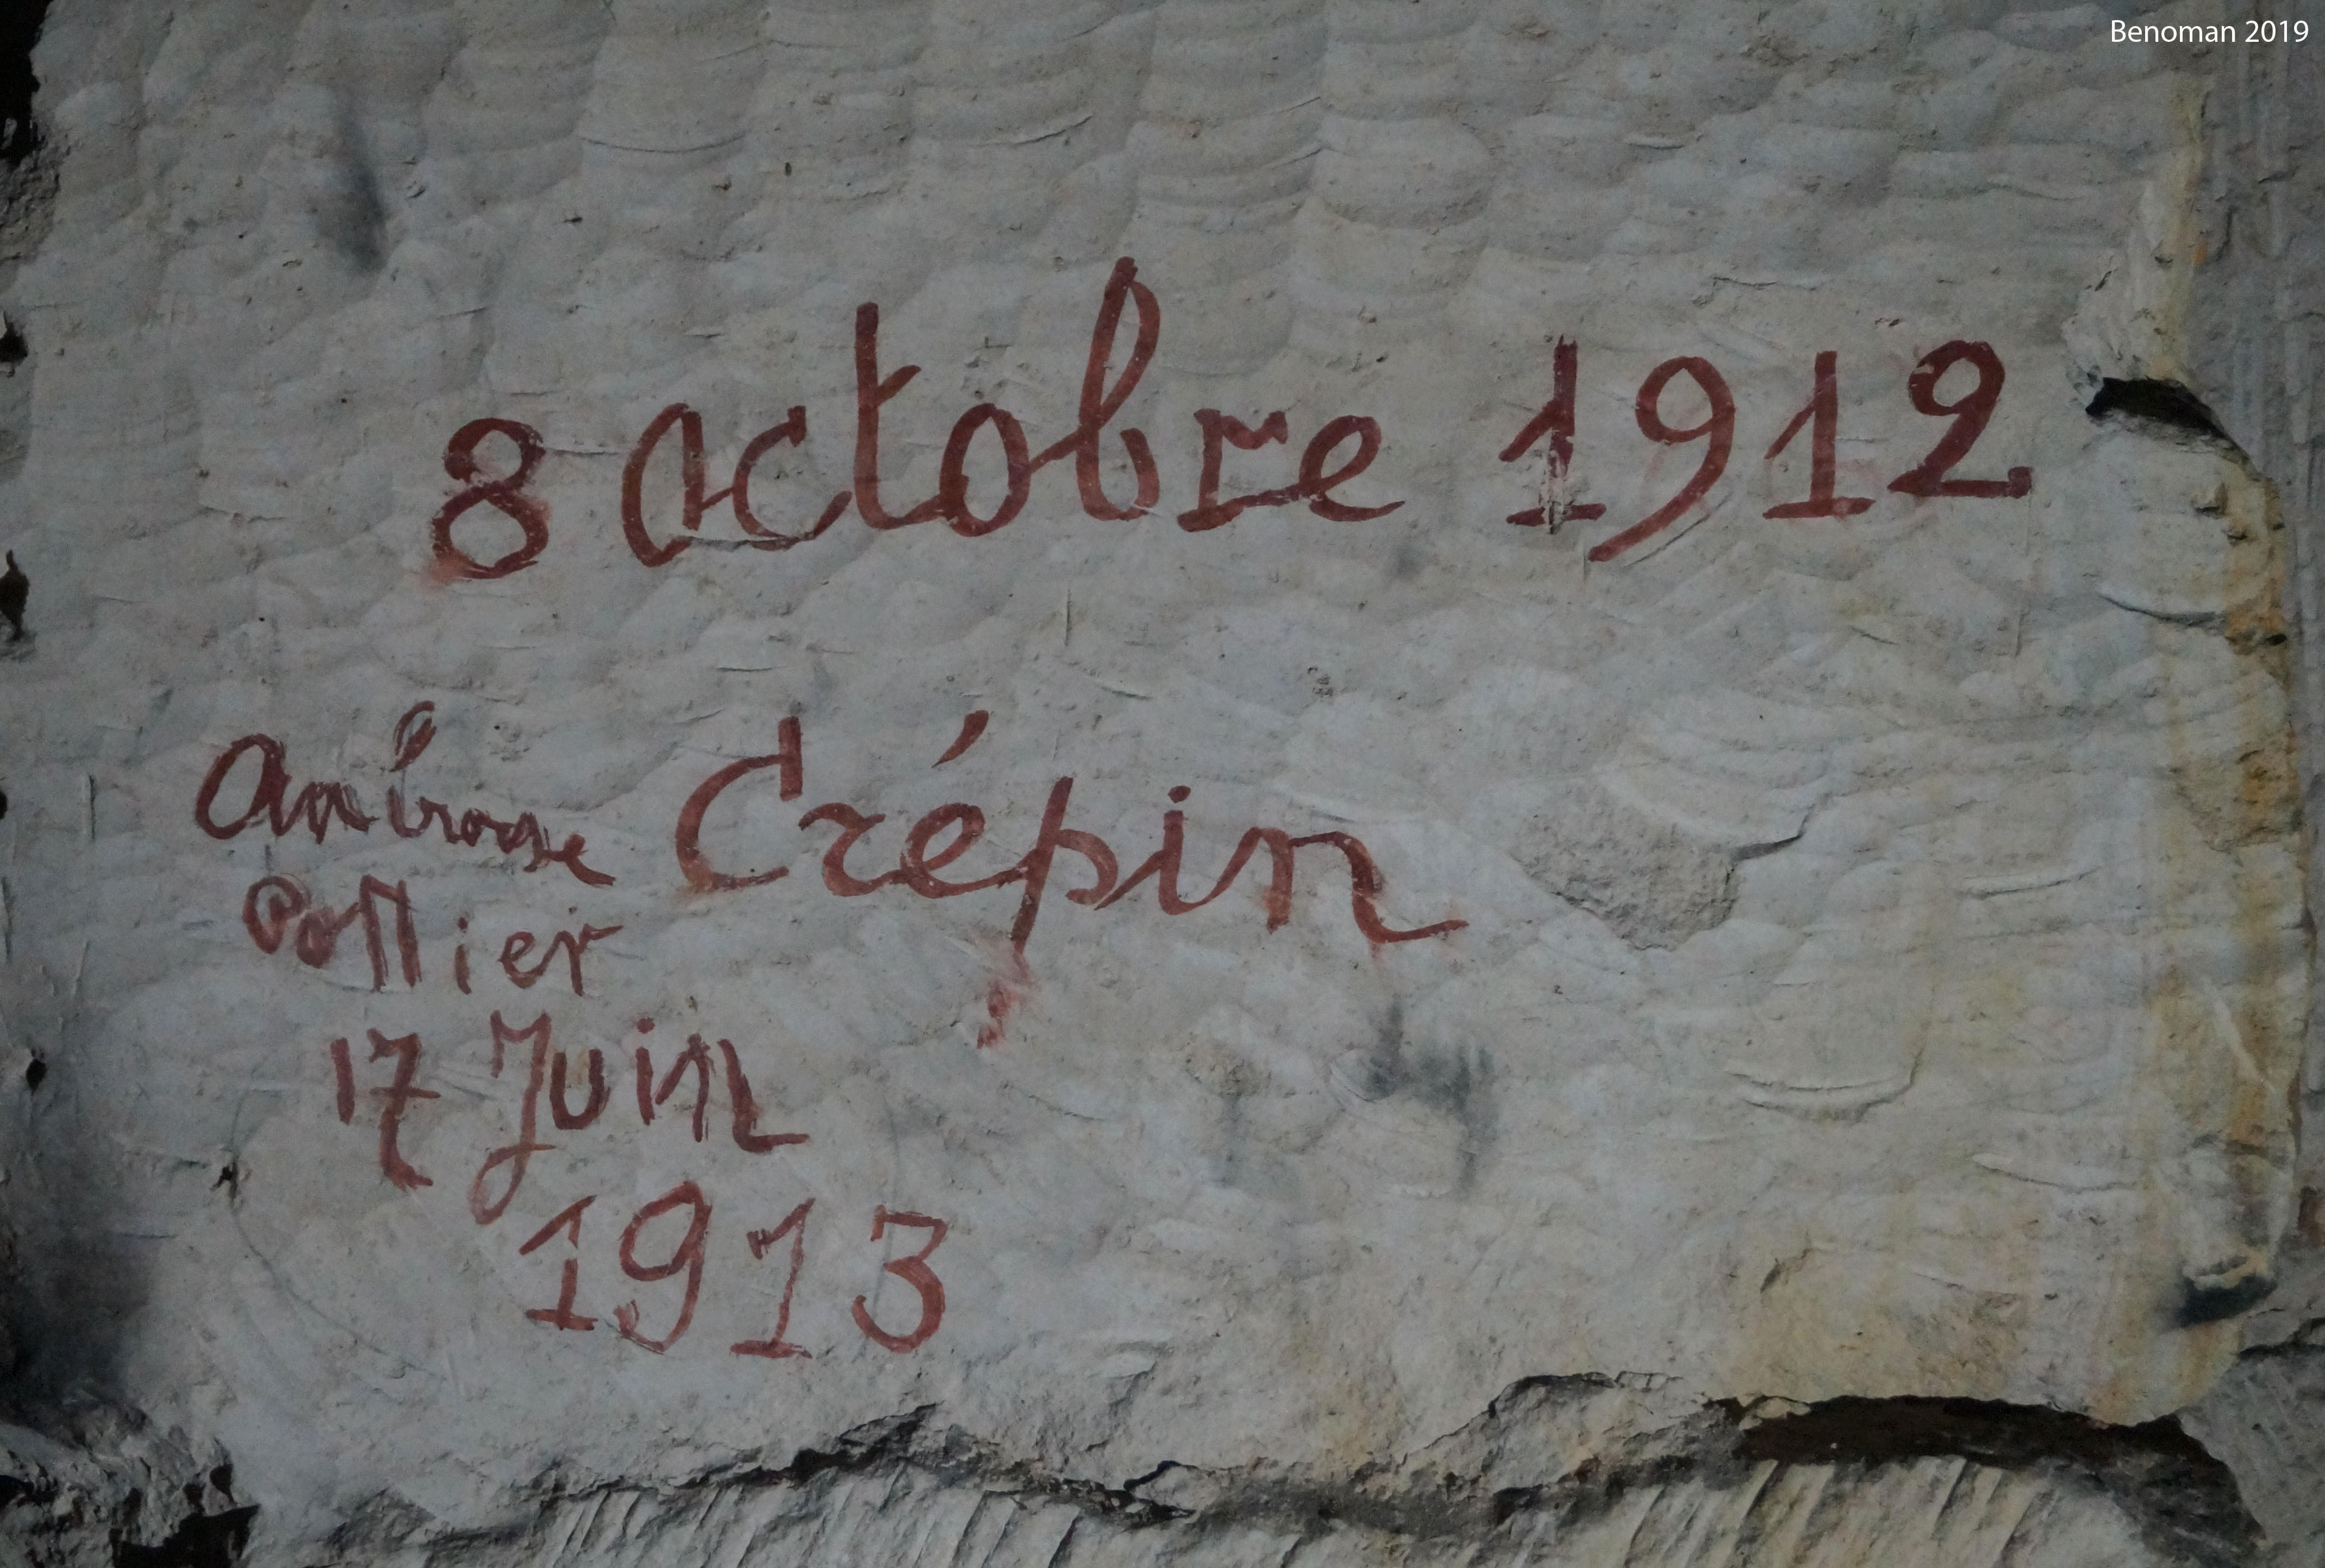 Benoman 2019
8 octobre 1912
Crépin
Ambroise
Pottier
17 Juin
1913